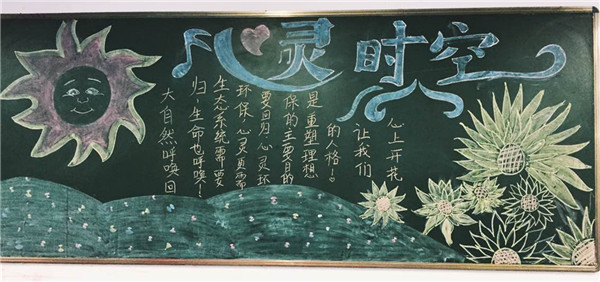 心灵时空
大自然呼唤回
归，生命也呼唤！
生态系统需要
环保，心灵更需
要回归心灵环
保的主要目的
是重塑理想
的人格！
让我们
心上开花